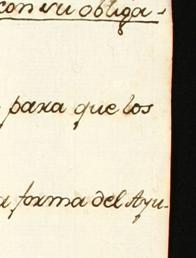 con su obliga-
para que los
forma del Ayu-